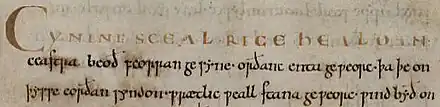 CYNING SCEAL RICE HEALDAN·
ceaſtra beoð feorran geſyne· orðanc enta geƿeorc· þa þe on
þyſſe eorðan ſyndon· ƿrætlic ƿeall ſtana geƿeorc· ƿind byð on